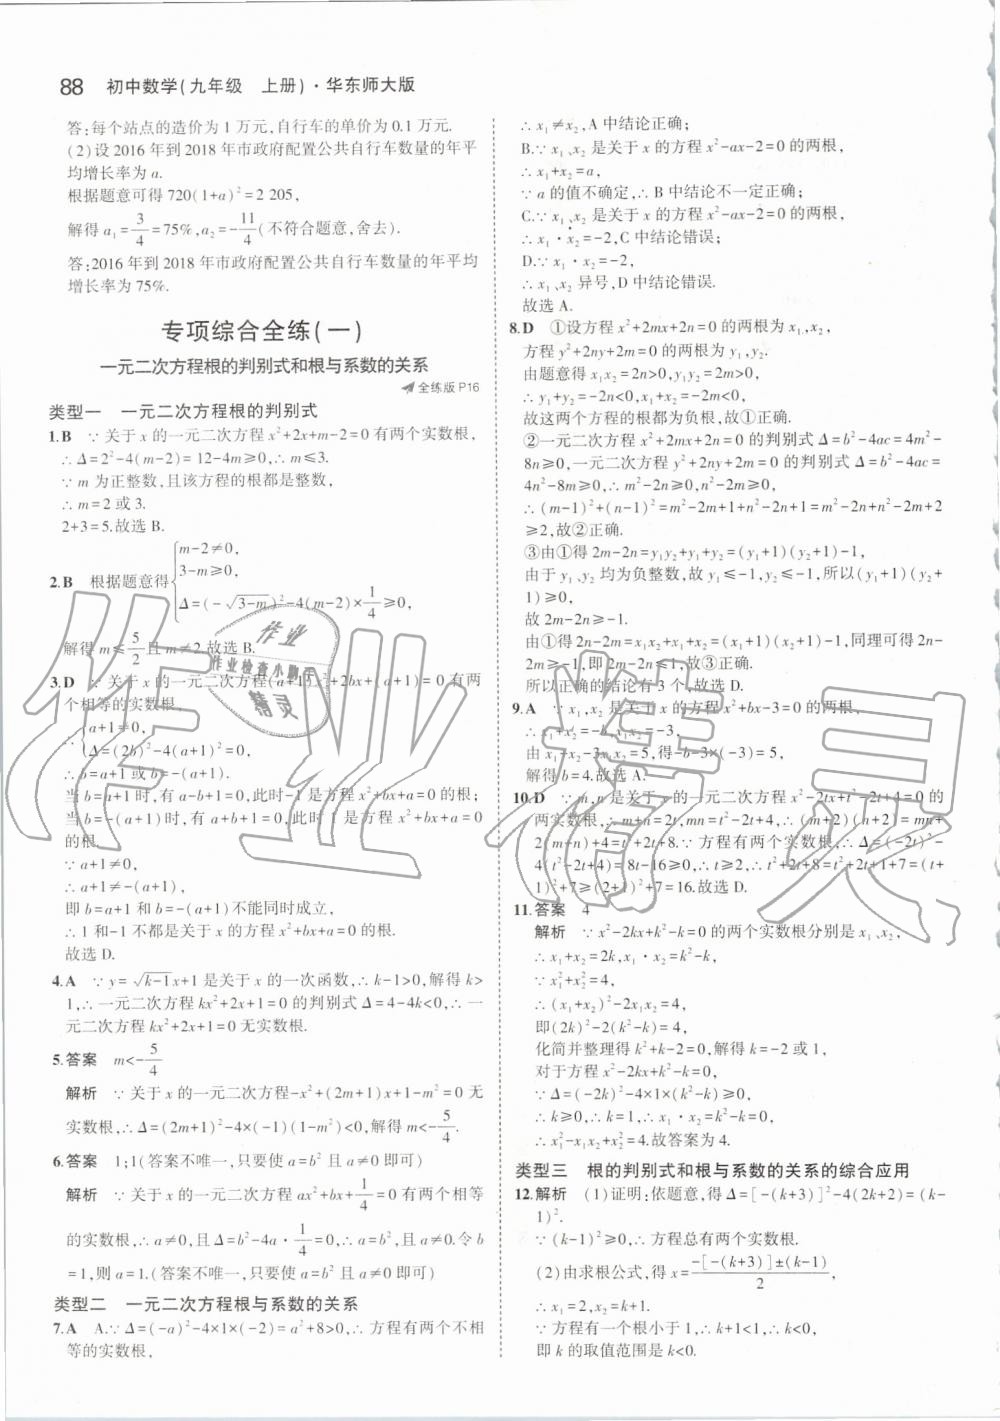 88 初中数学(九年级 上册)·华东师大版
答:每个站点的造价为1万元,自行车的单价为0.1万元.
(2)设2016年到2018年市政府配置公共自行车数量的年平
均增长率为a.
根据题意可得720(1+a)²=2 205,
解得a₁=3/4=75%,a₂=-11/4(不符合题意,舍去).
答:2016年到2018年市政府配置公共自行车数量的年平均
增长率为75%.
专项综合全练(一)
一元二次方程根的判别式和根与系数的关系
全练版P16
类型一 一元二次方程根的判别式
1.B ∵关于x的一元二次方程x²+2x+m-2=0有两个实数根,
∴Δ=2²-4(m-2)=12-4m≥0,∴m≤3.
∵m为正整数,且该方程的根都是整数,
∴m=2或3.
2+3=5.故选B.
2.B 根据题意得{m-2≠0,
3-m≥0,
Δ=(-√(3-m))²-4(m-2)×1/4≥0,
解得m≤5/2且m≠2.故选B.
3.D ∵关于x的一元二次方程(a+1)x²+2bx+(a+1)=0有两
个相等的实数根,
∴{a+1≠0,
Δ=(2b)²-4(a+1)²=0,
∴b=a+1或b=-(a+1).
当b=a+1时,有a-b+1=0,此时-1是方程x²+bx+a=0的根;
当b=-(a+1)时,有a+b+1=0,此时1是方程x²+bx+a=0
的根.
∵a+1≠0,
∴a+1≠-(a+1),
即b=a+1和b=-(a+1)不能同时成立,
∴1和-1不都是关于x的方程x²+bx+a=0的根.
故选D.
4.A ∵y=√(k-1)x+1是关于x的一次函数,∴k-1>0,解得k>
1,∴一元二次方程kx²+2x+1=0的判别式Δ=4-4k<0,∴一
元二次方程kx²+2x+1=0无实数根.
5.答案 m<-5/4
解析 ∵关于x的一元二次方程-x²+(2m+1)x+1-m²=0无
实数根,∴Δ=(2m+1)²-4×(-1)(1-m²)<0,解得m<-5/4.
6.答案 1;1(答案不唯一,只要使a=b²且a≠0即可)
解析 ∵关于x的一元二次方程ax²+bx+1/4=0有两个相等
的实数根,∴a≠0,且Δ=b²-4a·1/4=0,∴a=b²,且a≠0.令b
=1,则a=1.(答案不唯一,只要使a=b²且a≠0即可)
类型二 一元二次方程根与系数的关系
7.A A.∵Δ=(-a)²-4×1×(-2)=a²+8>0,∴方程有两个不相
等的实数根,
∴x₁≠x₂,A中结论正确;
B.∵x₁、x₂是关于x的方程x²-ax-2=0的两根,
∴x₁+x₂=a,
∵a的值不确定,∴B中结论不一定正确;
C.∵x₁、x₂是关于x的方程x²-ax-2=0的两根,
∴x₁·x₂=-2,C中结论错误;
D.∵x₁·x₂=-2,
∴x₁、x₂异号,D中结论错误.
故选A.
8.D ①设方程x²+2mx+2n=0的两根为x₁,x₂,
方程y²+2ny+2m=0的两根为y₁,y₂.
由题意得x₁x₂=2n>0,y₁y₂=2m>0,
∴y₁+y₂=-2n<0,x₁+x₂=-2m<0,
故这两个方程的根都为负根,故①正确.
②一元二次方程x²+2mx+2n=0的判别式Δ=b²-4ac=4m²-
8n≥0,一元二次方程y²+2ny+2m=0的判别式Δ=b²-4ac=
4n²-8m≥0,∴m²-2n≥0,n²-2m≥0,
∴(m-1)²+(n-1)²=m²-2m+1+n²-2n+1=m²-2n+n²-2m+2
≥2,故②正确.
③由①得2m-2n=y₁y₂+y₁+y₂=(y₁+1)(y₂+1)-1,
由于y₁、y₂均为负整数,故y₁≤-1,y₂≤-1,所以(y₁+1)(y₂+
1)≥0,
故2m-2n≥-1.
由①得2n-2m=x₁x₂+x₁+x₂=(x₁+1)(x₂+1)-1,同理可得2n-
2m≥-1,即2m-2n≤1,故③正确.
所以正确的结论有3个,故选D.
9.A ∵x₁,x₂是关于x的方程x²+bx-3=0的两根,
∴x₁+x₂=-b,x₁x₂=-3,
由x₁+x₂-3x₁x₂=5,得-b-3×(-3)=5,
解得b=4.故选A.
10.D ∵m,n是关于x的一元二次方程x²-2tx+t²-2t+4=0的
两实数根,∴m+n=2t,mn=t²-2t+4,∴(m+2)(n+2)=mn+
2(m+n)+4=t²+2t+8.∵方程有两个实数根,∴Δ=(-2t)²-
4(t²-2t+4)=8t-16≥0,∴t≥2,∴t²+2t+8=t²+2t+1+7=(t+
1)²+7≥(2+1)²+7=16.故选D.
11.答案 4
解析 ∵x²-2kx+k²-k=0的两个实数根分别是x₁、x₂,
∴x₁+x₂=2k,x₁·x₂=k²-k,
∵x₁²+x₂²=4,
∴(x₁+x₂)²-2x₁x₂=4,
即(2k)²-2(k²-k)=4,
化简并整理得k²+k-2=0,解得k=-2或1,
对于方程x²-2kx+k²-k=0,
∵Δ=(-2k)²-4×1×(k²-k)≥0,
∴k≥0,∴k=1,∴x₁·x₂=k²-k=0,
∴x₁²-x₁x₂+x₂²=4.故答案为4.
类型三 根的判别式和根与系数的关系的综合应用
12.解析 (1)证明:依题意,得Δ=[-(k+3)]²-4(2k+2)=(k-
1)².
∵(k-1)²≥0,∴方程总有两个实数根.
(2)由求根公式,得x=(-[-(k+3)]±(k-1))/2,
∴x₁=2,x₂=k+1.
∵方程有一个根小于1,∴k+1<1,∴k<0,
即k的取值范围是k<0.
作业
作业检查小助手
精灵
作业精灵